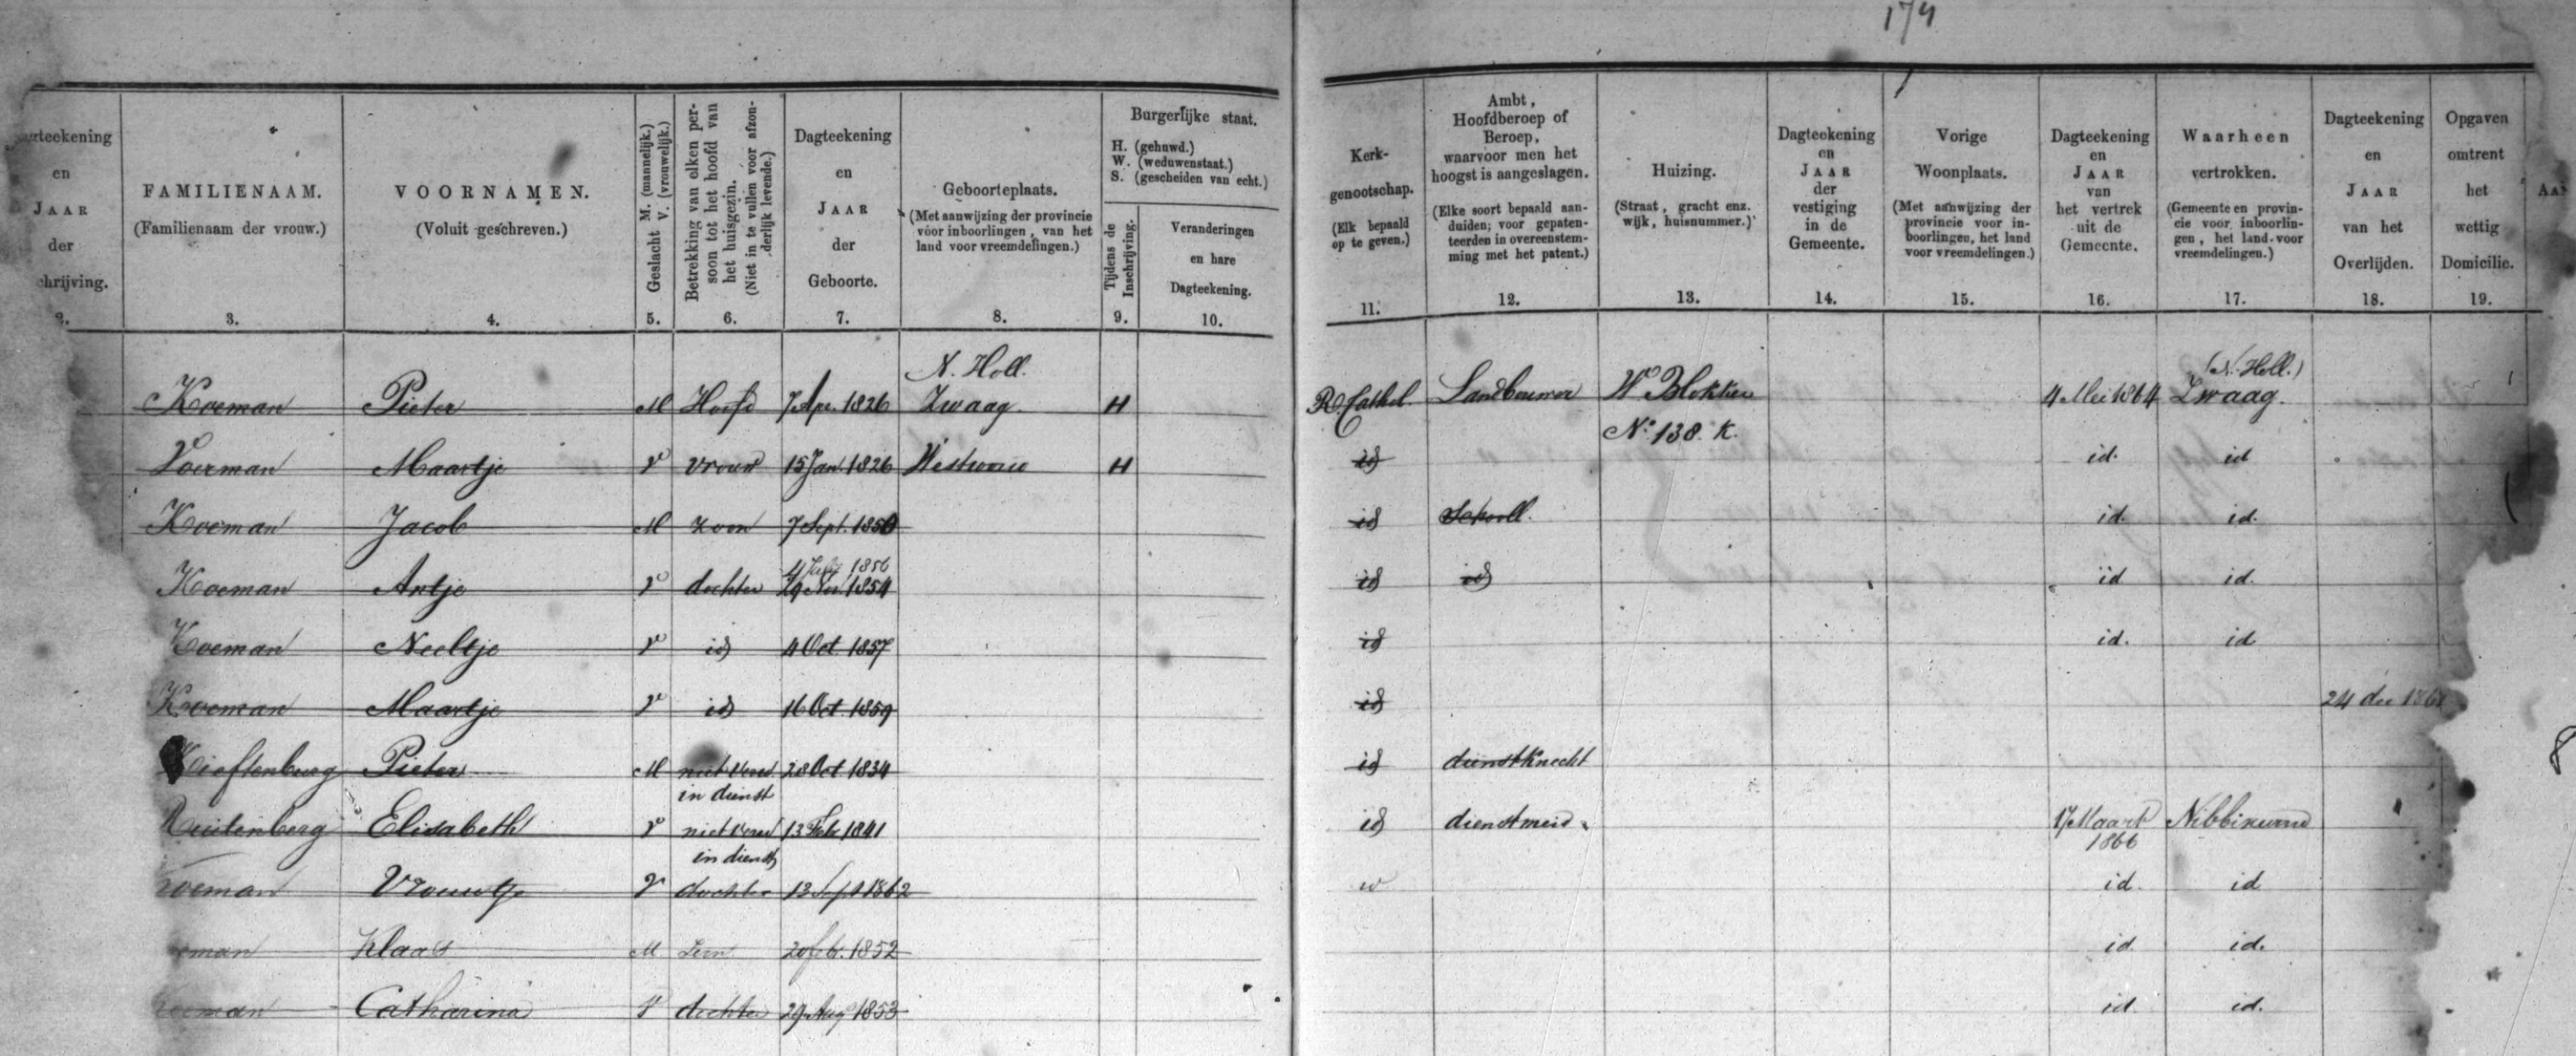 174
agteekening en JAAR der chrijving. 2.
FAMILIENAAM. (Familienaam der vrouw.) 3.
VOORNAMEN. (Voluit geschreven.) 4.
Geslacht M. (mannelijk.) V. (vrouwelijk.) 5.
Betrekking van elken persoon tot het hoofd van het huisgezin. (Niet in te vullen voor afzonderlijk levende.) 6.
Dagteekening en JAAR der Geboorte. 7.
Geboorteplaats. (Met aanwijzing der provincie voor inboorlingen, van het land voor vreemdelingen.) 8.
Burgerlijke staat. H. (gehuwd.) W. (weduwenstaat.) S. (gescheiden van echt.)
Tijdens de Inschrijving. 9.
Veranderingen en hare Dagteekening. 10.
Kerkgenootschap. (Elk bepaald op te geven.) 11.
Ambt, Hoofdberoep of Beroep, waarvoor men het hoogst is aangeslagen. (Elke soort bepaald aanduiden; voor gepatenteerden in overeenstemming met het patent.) 12.
Huizing. (Straat, gracht enz. wijk, huisnummer.) 13.
Dagteekening en JAAR der vestiging in de Gemeente. 14.
Vorige Woonplaats. (Met aanwijzing der provincie voor inboorlingen, het land voor vreemdelingen.) 15.
Dagteekening en JAAR van het vertrek uit de Gemeente. 16.
Waarheen vertrokken. (Gemeente en provincie voor inboorlingen, het land voor vreemdelingen.) 17.
Dagteekening en JAAR van het Overlijden. 18.
Opgaven omtrent het wettig Domicilie. 19.
Aa
N. Holl. (N. Holl.)
Koeman Pieter M Hoofd 7 Apr. 1826 Zwaag H R Cathol. Landbouwer W Blokker 4 Mei 1864 Zwaag.
No. 138. K.
Koeman Maartje V vrouw 15 Jan. 1826 Westwoud H id id. id
Koeman Jacob M zoon 7 Sept. 1850 id School. id. id.
4 July 1856
Koeman Antje V dochter 29 Nov. 1854 id id id id.
Koeman Neeltje V id 4 Oct. 1857 id id. id
Koeman Maartje V id 16 Oct. 1859 id 24 dec 186
Kieftenburg Pieter M niet verw 28 Oct 1834 id dienstknecht
in dienst
Ruitenberg Elisabeth V niet verw 13 Feb 1841 id dienstmeid 17 Maart Nibbixwoud
in dienst 1866
oeman Vrouwtje V dochter 13 Sept 1862 id id
eman Klaas M 20 feb. 1852 id id.
oeman Catharina V dochter 29 Aug 1853 id. id.
8